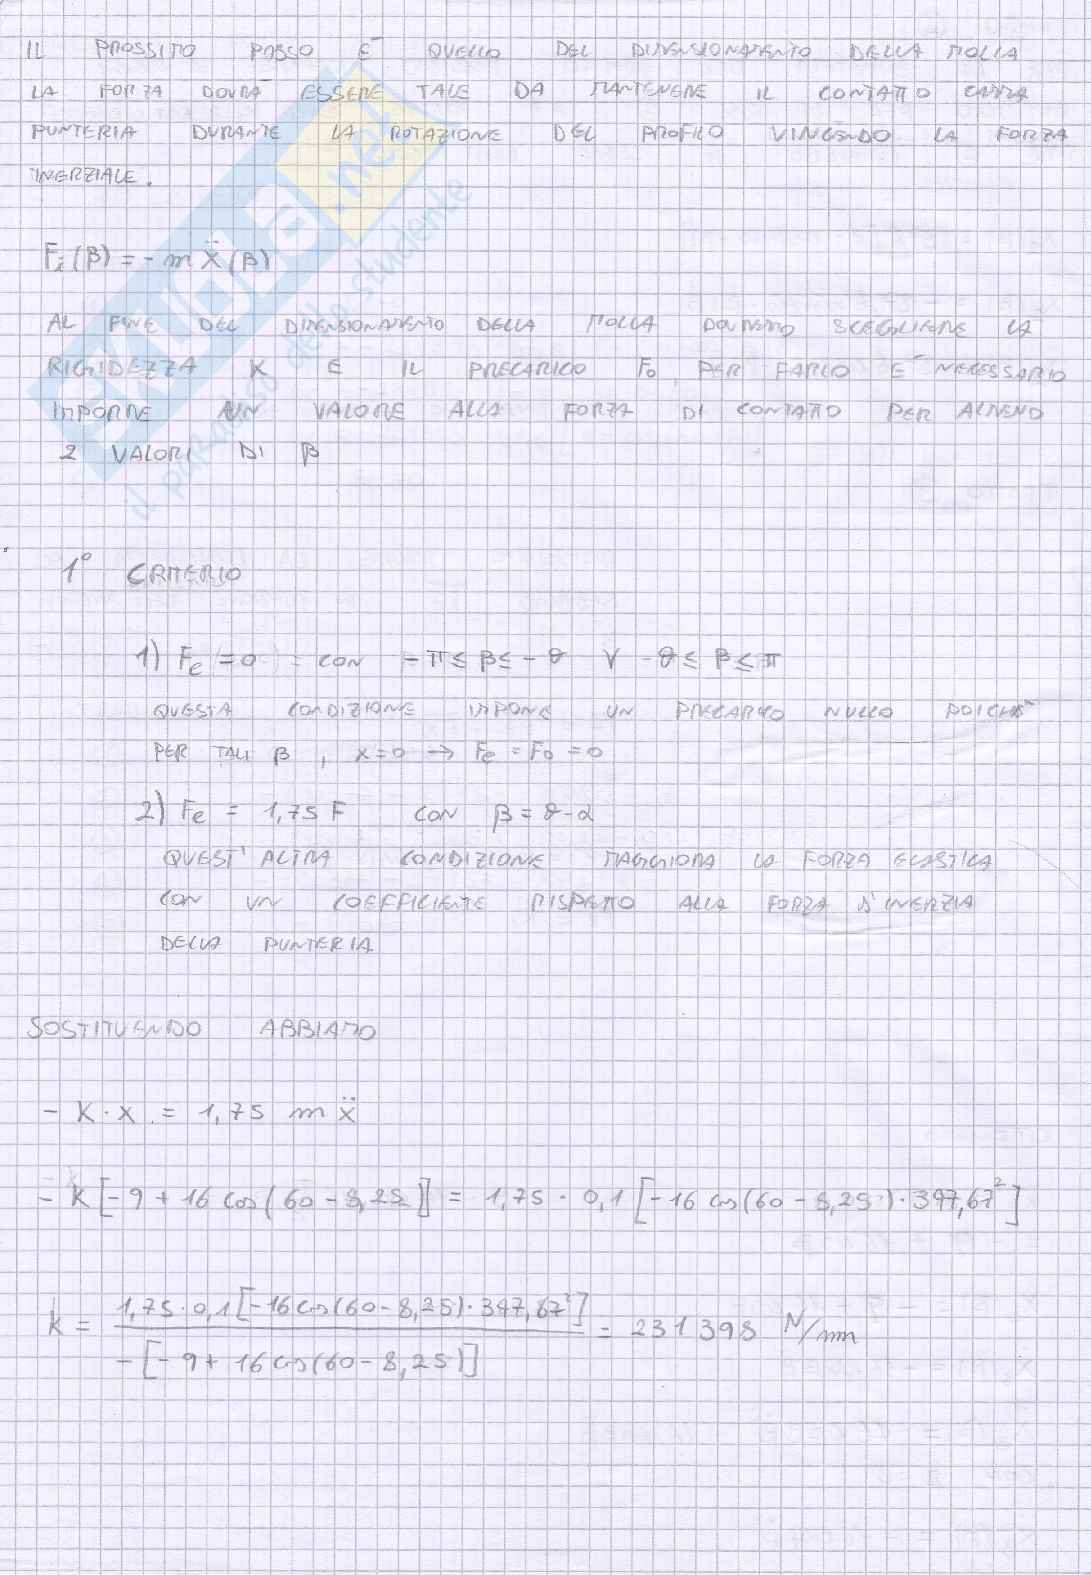 IL PROSSIMO PASSO È QUELLO DEL DIMENSIONAMENTO DELLA MOLLA
LA FORZA DOVRÀ ESSERE TALE DA MANTENERE IL CONTATTO CAMMA
PUNTERIA DURANTE LA ROTAZIONE DEL PROFILO VINCENDO LA FORZA
INERZIALE.
Fi(β) = - m ẍ(β)
AL FINE DEL DIMENSIONAMENTO DELLA MOLLA DOVREMO SCEGLIERE LA
RIGIDEZZA K E IL PRECARICO F₀, PER FARLO È NECESSARIO
IMPORRE UN VALORE ALLA FORZA DI CONTATTO PER ALMENO
2 VALORI DI β
1° CRITERIO
1) Fe = 0 CON -π ≤ β ≤ -ϑ V -ϑ ≤ β ≤ π
QUESTA CONDIZIONE IMPONE UN PRECARICO NULLO POICHÈ
PER TALI β, x=0 → Fe = F₀ = 0
2) Fe = 1,75 F CON β = ϑ-α
QUEST'ALTRA CONDIZIONE MAGGIORA LA FORZA ELASTICA
CON UN COEFFICIENTE RISPETTO ALLA FORZA D'INERZIA
DELLA PUNTERIA
SOSTITUENDO ABBIAMO
- K · x = 1,75 m ẍ
- K [-9 + 16 cos(60 - 8,25)] = 1,75 · 0,1 [-16 cos(60 - 8,25) · 397,67²]
K = 1,75 · 0,1 [-16 cos(60 - 8,25) · 397,67²] / -[-9 + 16 cos(60 - 8,25)] = 231398 N/mm
SKUOLA.net
il paradiso dello studente